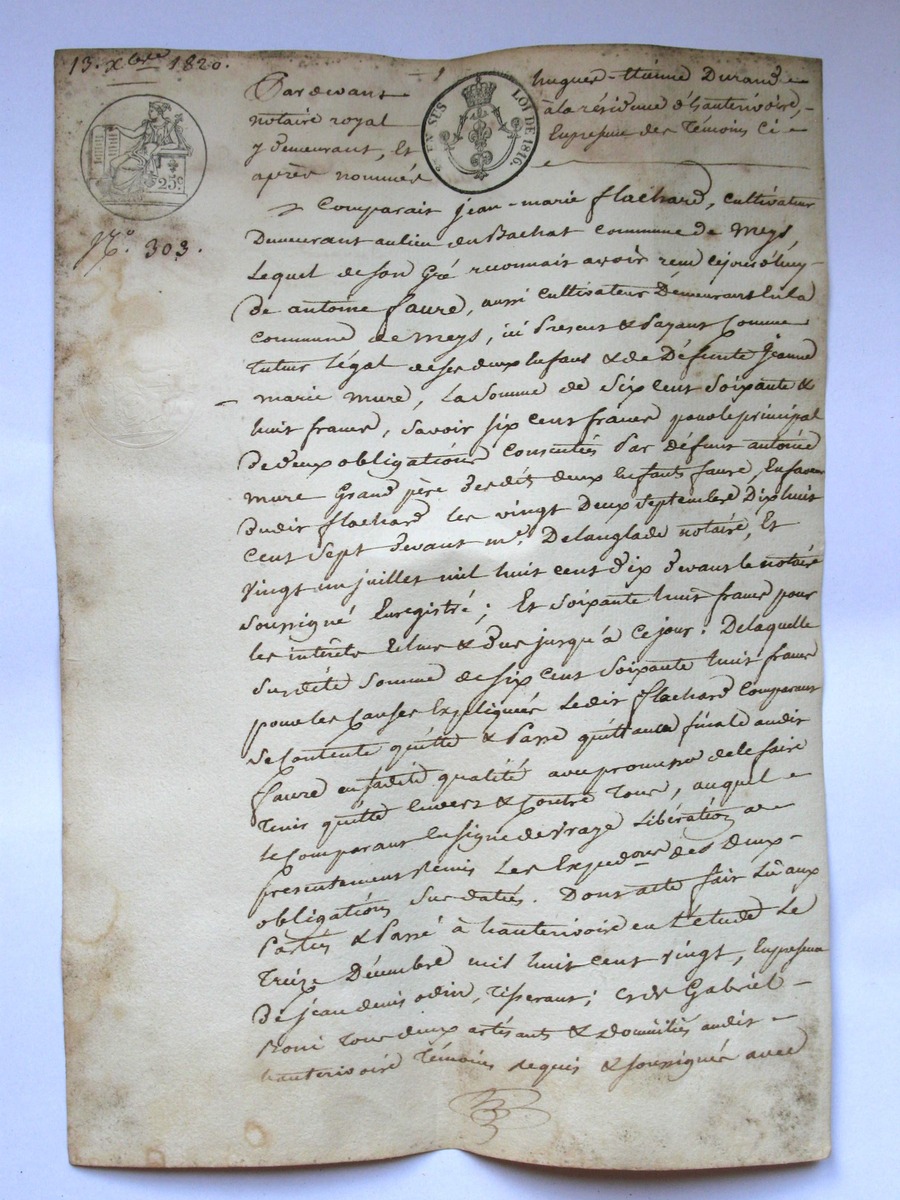 13. Xbre 1820.
25c
EN SUS
LOI DE 1816.
No. 303.
Pardevant hugues-Etienne Durand
notaire royal à la résidence d'hauterivoire,
y demeurant, Et En presence des Témoins Ci
après nommés
Comparait Jean-marie flachard, cultivateur
Demeurant au lieu du Bachat commune de meys
Lequel de son Gré reconnait avoir recu cejourd'huy
De antoine faure, aussi cultivateur Demeurant En la
commune de meys, ici Present & Payant Comme
tuteur légal de ses deux Enfans & de Défunte Jeanne
marie mure, La Somme de Six cent Soixante &
huit francs, savoir six cent francs pour le principal
de deux obligations Consenties Par défunt antoine
mure Grand père desdits deux Enfants faure, En faveur
dudit flachard les vingt deux septembre Dix huit
cent Sept devant me. Delanglade notaire, Et
vingt un juillet mil huit cent dix devant le notaire
soussigné Enregistré; Et soixante huit francs pour
les intérêts Echus & dus jusqu'à ce jour: De laquelle
susdite somme de six cent soixante huit francs
pour les Causes Expliquées Ledit flachard Comparant
se Contente quitte & Passe quittance finale audit
faure en sadite qualité avec promesse de le faire
tenir quitte Envers & Contre Tous, auquel
le Comparant En signe de vraye Libération a
presentement Remis Les Expedons des deux
obligations Sus datées. Dont acte fait Lû aux
Parties & Passé à hauterivoire en L'étude Le
Treize Décembre mil huit cent vingt, En presence
De jean denis odin, Tisserant; & de Gabriel
Tous deux artisants & domiciliés audit
hauterivoire Témoins requis & soussignés avec